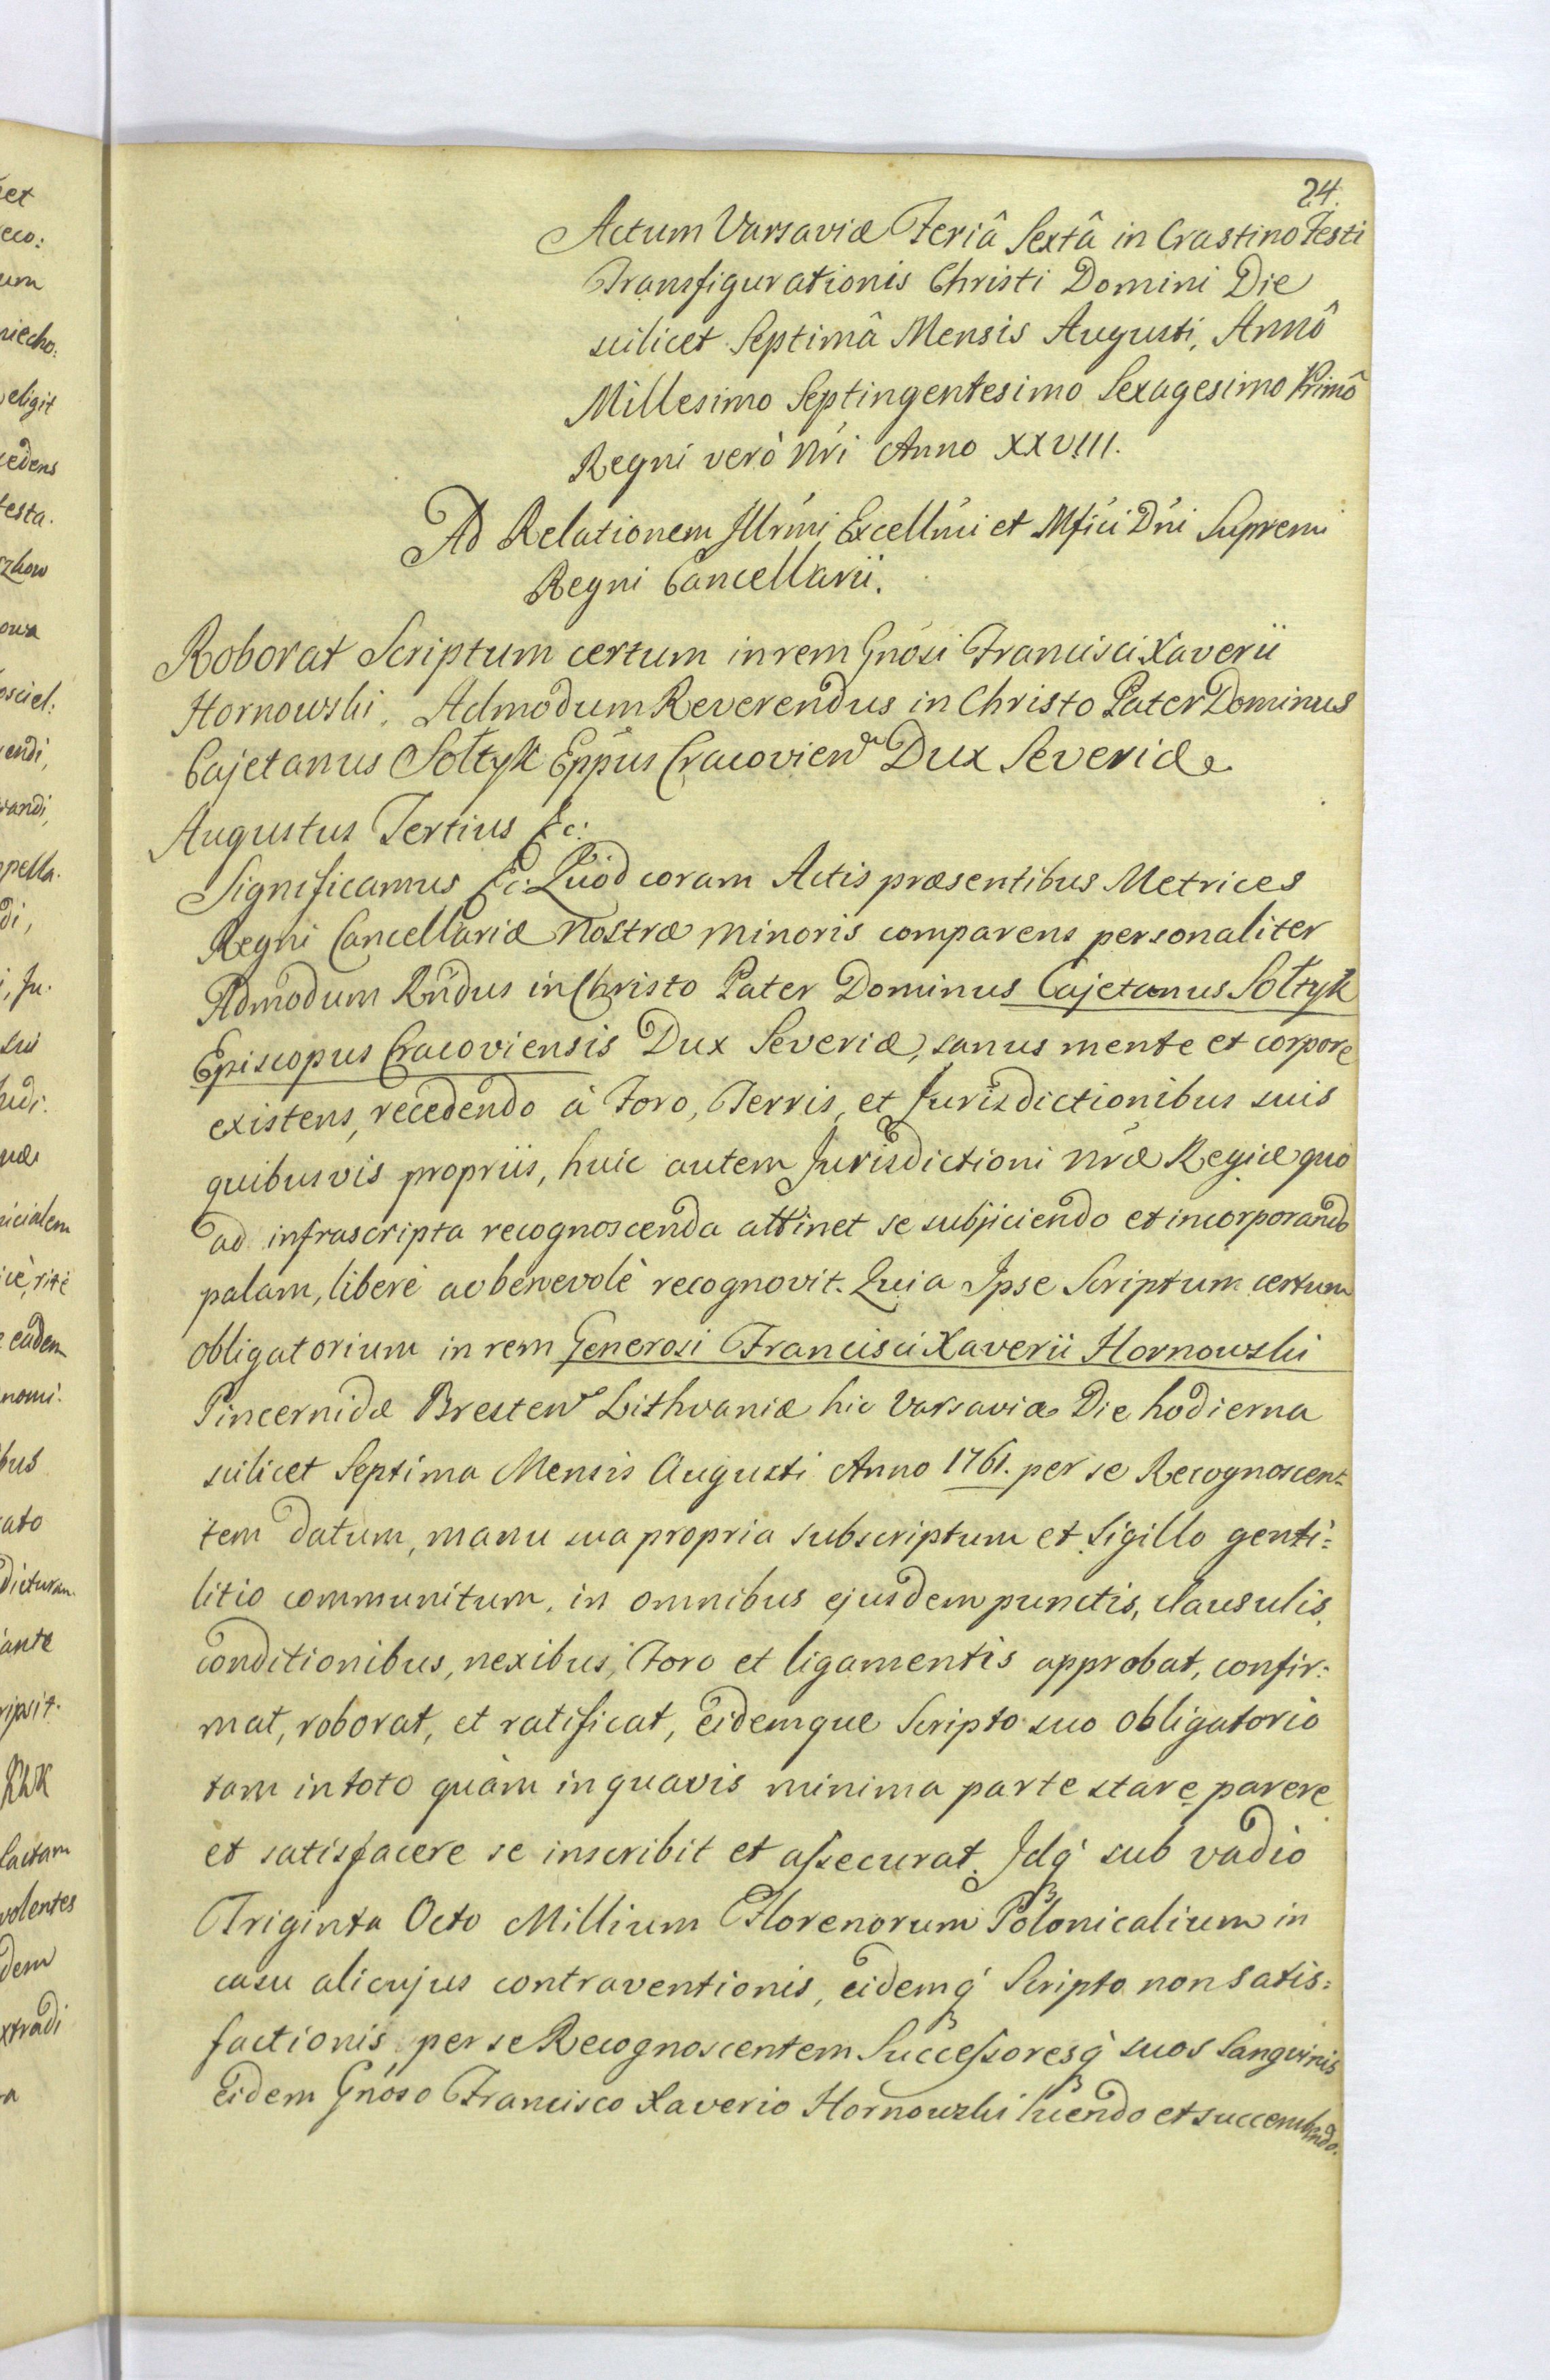 24.
Actum Varsaviæ Feriâ Sextâ in Crastino Festi
Transfigurationis Christi Domini Die
scilicet Septimâ Mensis Augusti, Annô
Millesimo Septingentesimo Sexagesimo Primô
Regni verò Nri Anno XXVIII.
Ad Relationem Illrmi Excellmi et Mfici Dni Supremi
Regni Cancellarii.
Roborat Scriptum certum in rem Gnosi Francisci Xaverii
Hornowski. Admodum Reverendus in Christo Pater Dominus
Cajetanus Sołtyk Eppus Cracovien Dux Severiæ
Augustus Tertius &c:
Significamus &c: Quod coram Actis præsentibus Metrices
Regni Cancellariæ Nostræ minoris comparens personaliter
Admodum Rndus in Christo Pater Dominus Cajetanus Sołtyk
Episcopus Cracoviensis Dux Severiæ, sanus mente et corpore
existens, recedendo à Foro, Terris, et Jurisdictionibus suis
quibusvis propriis, huic autem Jurisdictioni Nræ Regiæ quo
ad infrascripta recognoscenda attinet se subjiciendo et incorporando
palam, liberè ac benevolè recognovit. Quia Ipse Scriptum certum
obligatorium in rem Generosi Francisci Xaverii Hornowski
Pincernidæ Bresten Lithvaniæ hic Varsaviæ Die hodierna
scilicet Septima Mensis Augusti Anno 1761. per se Recognoscen-
tem datum, manu sua propria subscriptum et Sigillo genti:
litio communitum, in omnibus ejusdem punctis, clausulis,
conditionibus, nexibus, Foro et ligamentis approbat, confir:
mat, roborat, et ratificat, eidemque Scripto suo obligatorio
tam in toto quàm in quavis minima parte stare, parere
et satisfacere se inscribit et assecurat. Idq́ sub vadio
Triginta Octo Millium Florenorum Polonicalium in
casu alicujus contraventionis, eidemq́ Scripto non satis:
factionis per se Recognoscentem Successoresq́ suos Sangvinis
eidem Gnoso Francisco Xaverio Hornowski luendo et succumbendo.